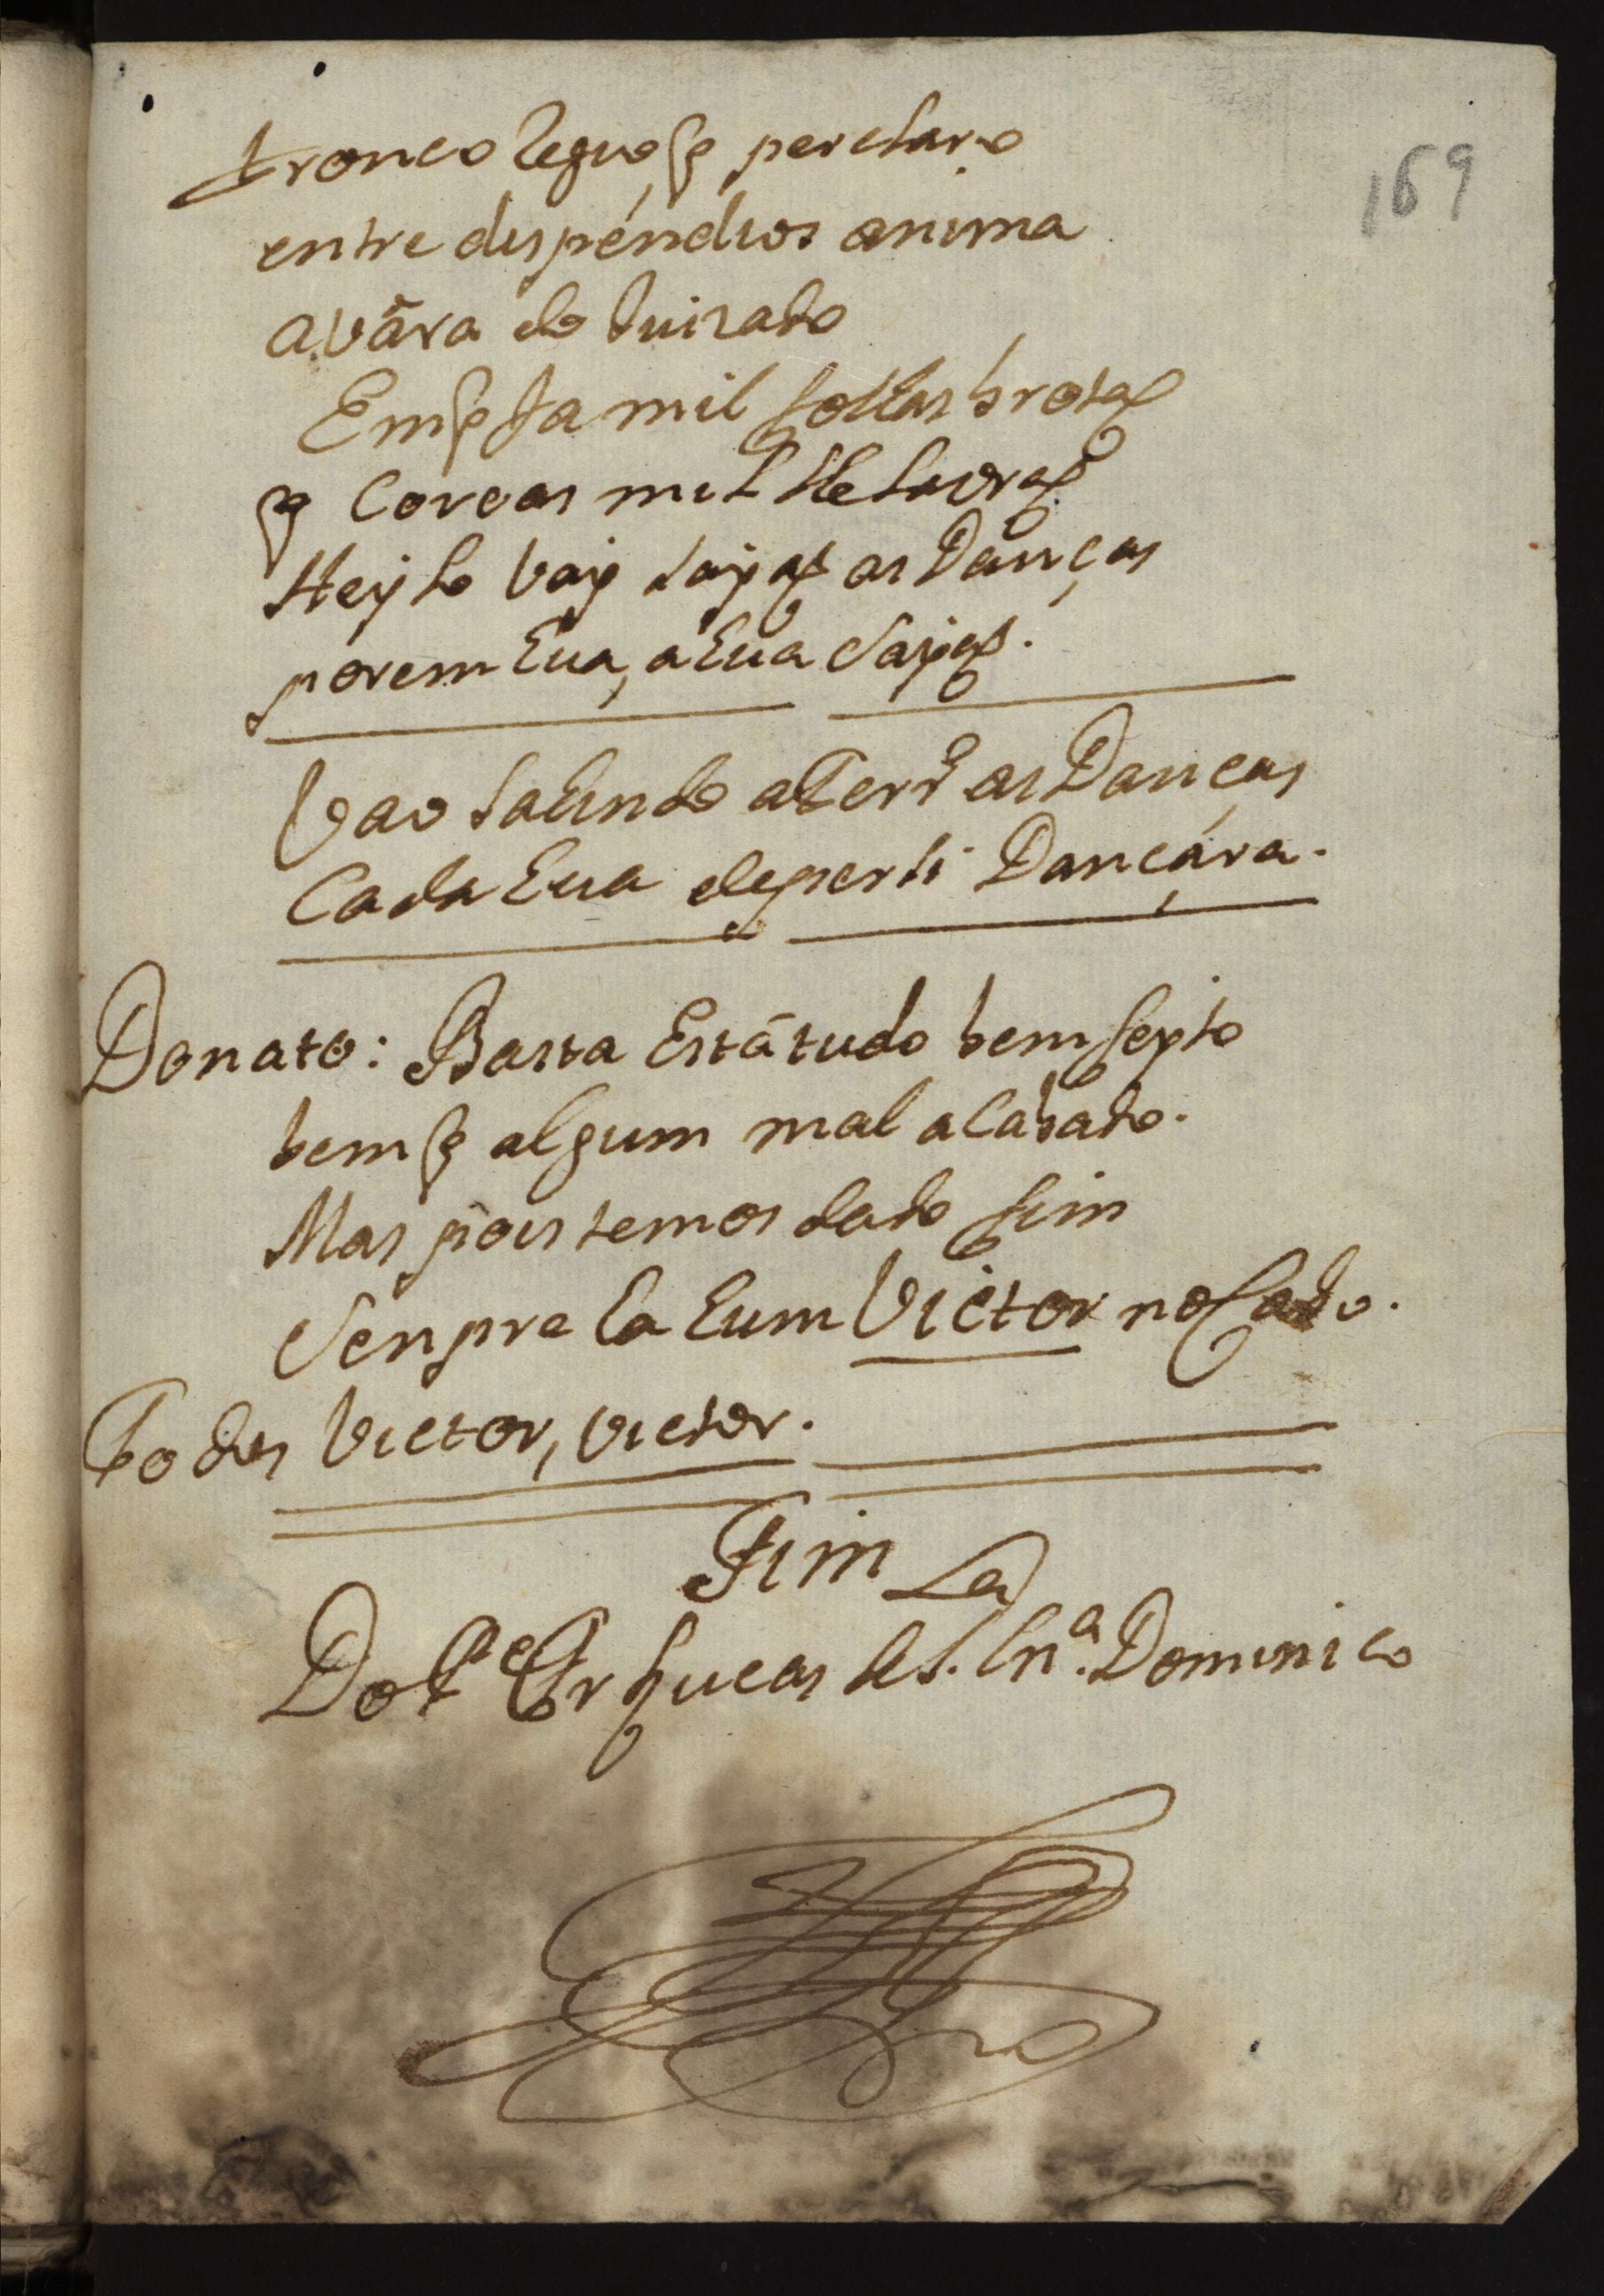 tronco Reguo, q̃ perclaro
169
entre dispéndios anima
avára do
Em q̃ Ja mil follas brotaõ
q̃ Coroas mil lhe lavraõ
Hey lo vay sayaõ as Danças
porem hua, a hua sayaõ.
Vao sahindo a Terrº as Danças
Cada hua de per si Dançára.
Donato: Basta Está tudo bem feyto
bem q̃ algum mal acabado.
Mas pois temos dado fim
Senpre ha hum Victor no Cabo.
Todos Victor, victor.
Fim
Do Pe Fr Lucas de S. Cn.ª Dominico